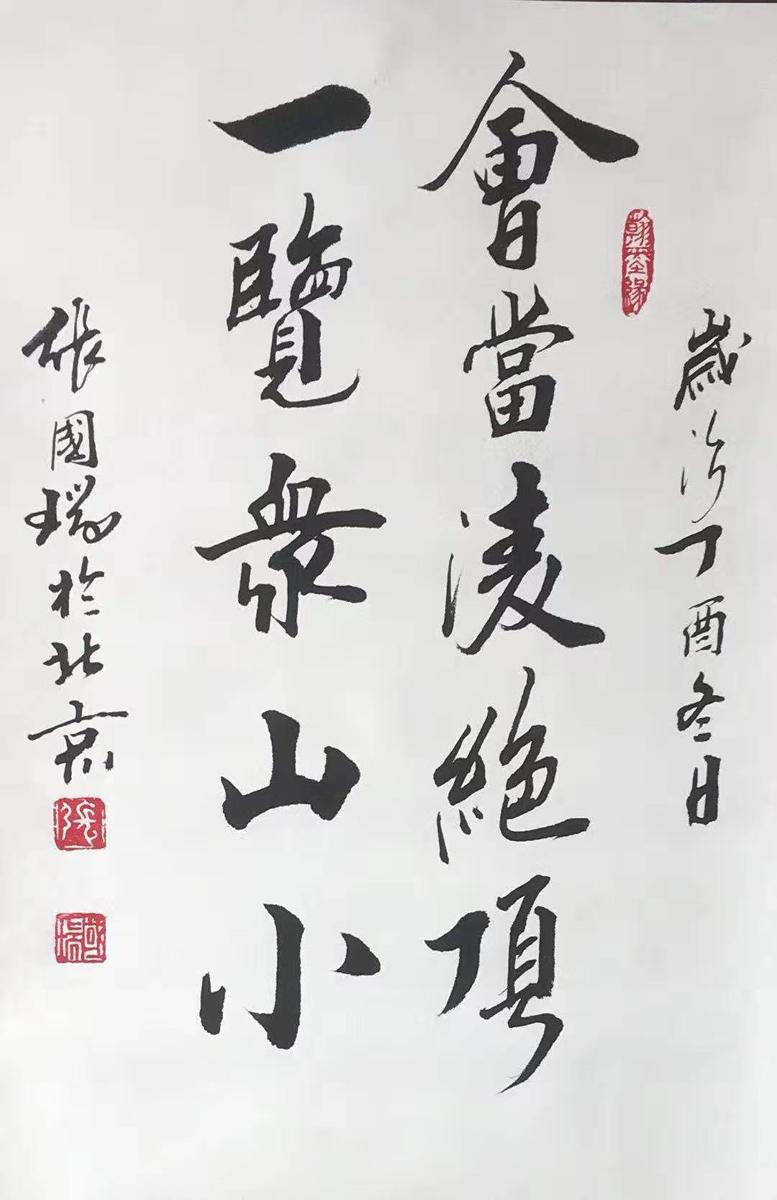 歲次丁酉冬日
會當凌絕頂
一覽衆山小
張國瑞於北京